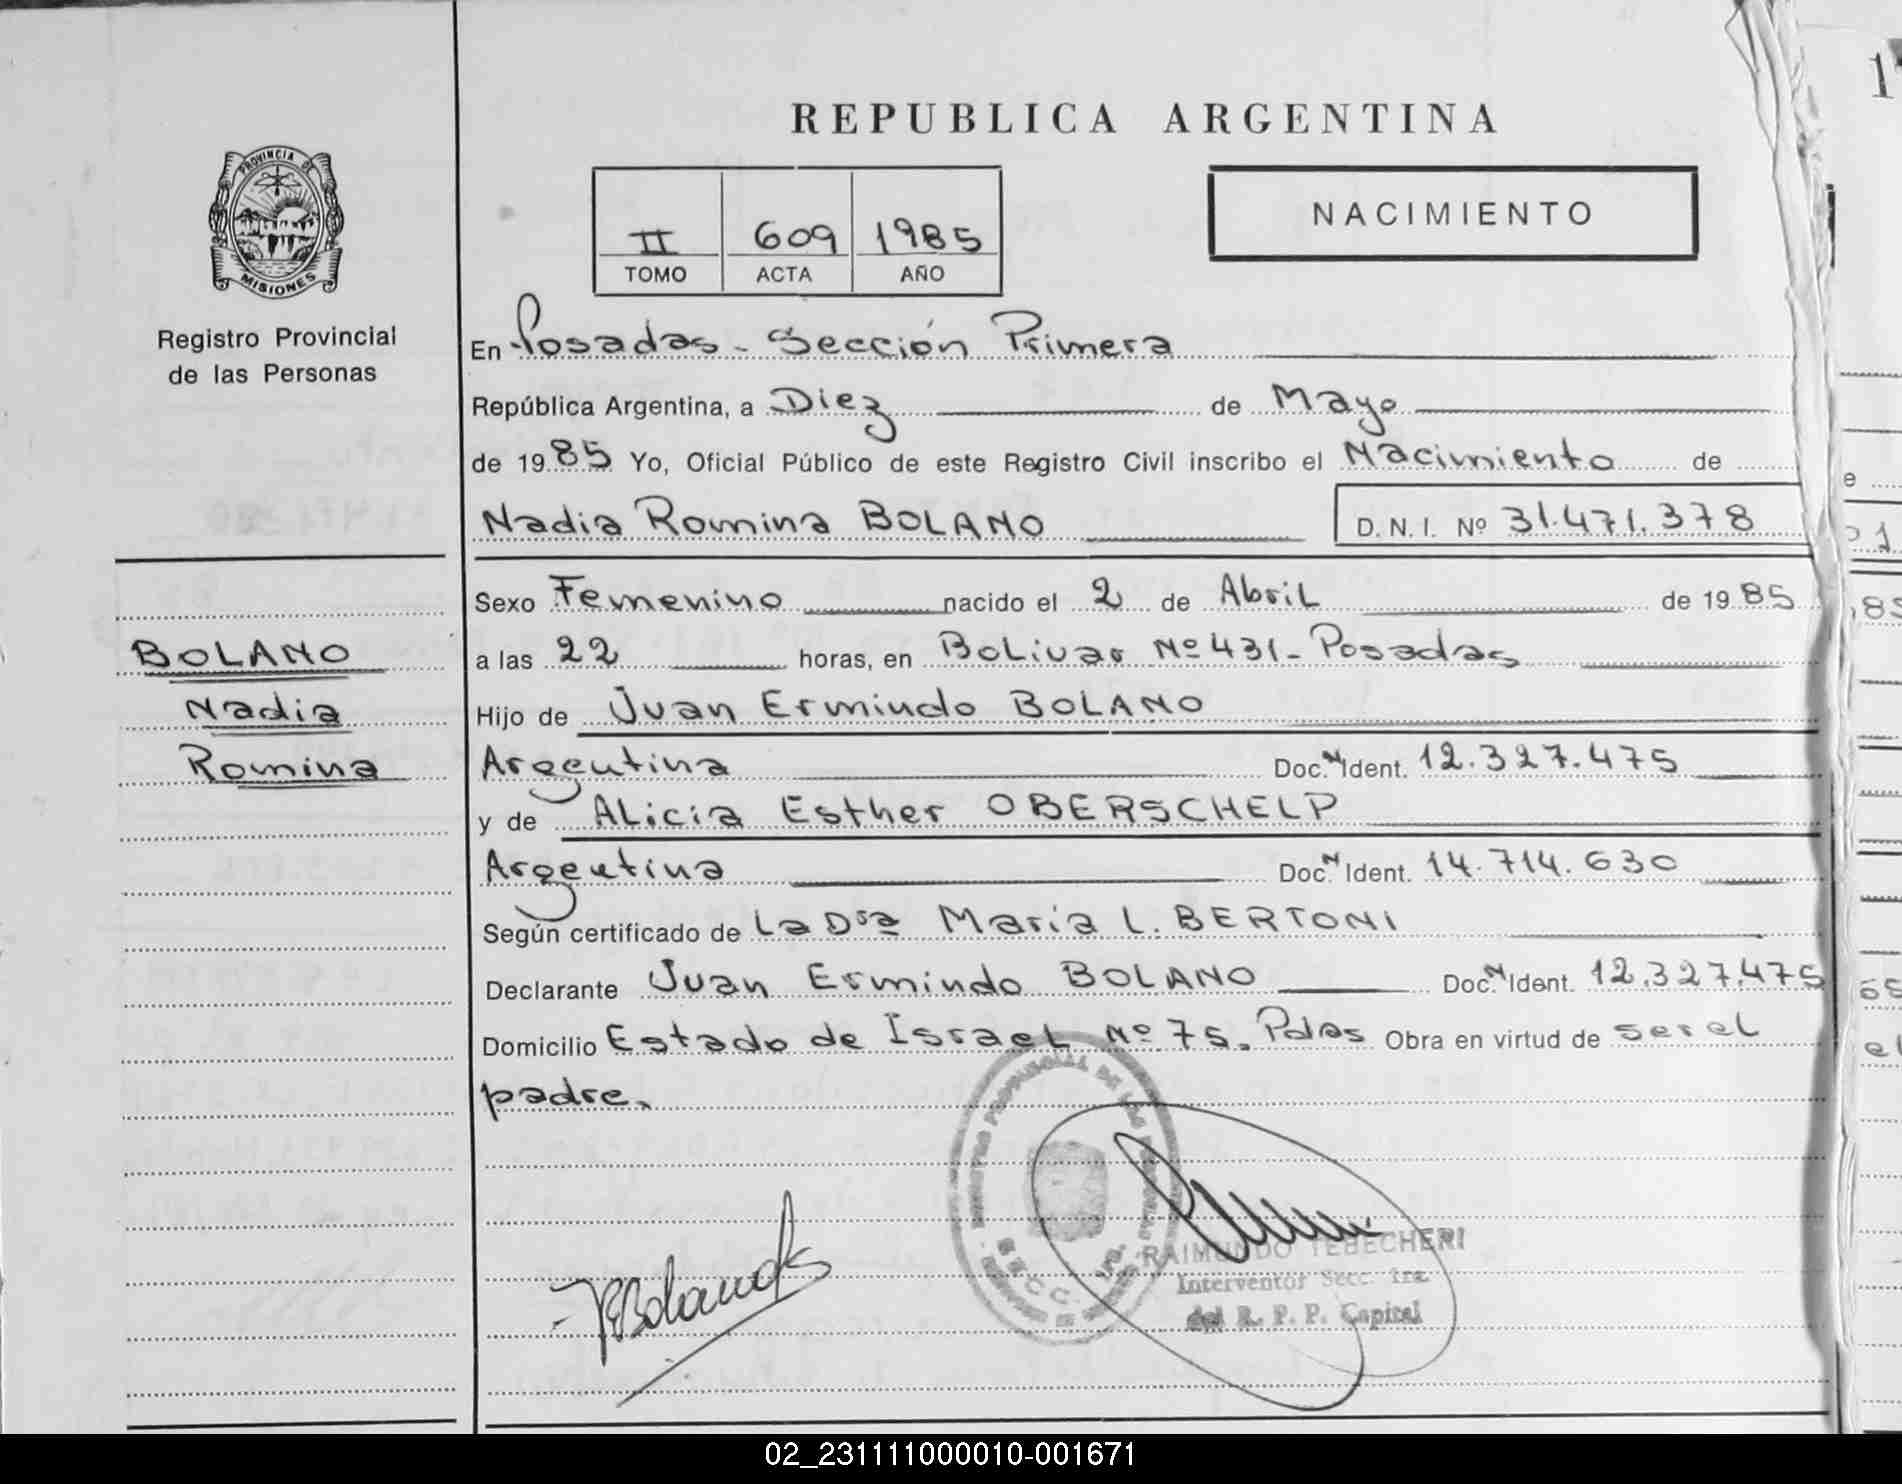 REPUBLICA ARGENTINA
PROVINCIA DE
MISIONES
Registro Provincial
de las Personas
II 609 1985
TOMO ACTA AÑO
NACIMIENTO
En Posadas - Sección Primera
República Argentina, a Diez de Mayo
de 1985 Yo, Oficial Público de este Registro Civil inscribo el Nacimiento de
Nadia Romina BOLANO D. N. I. Nº 31.471.378
BOLANO
Nadia
Romina
Sexo Femenino nacido el 2 de Abril de 1985
a las 22 horas, en Bolivar Nº 431 - Posadas
Hijo de Juan Ermindo BOLANO
Argentina Doc. N Ident. 12.327.475
y de Alicia Esther OBERSCHELP
Argentina Doc. N Ident. 14.714.630
Según certificado de La Dra Maria L. BERTONI
Declarante Juan Ermindo BOLANO Doc. N Ident. 12.327.475
Domicilio Estado de Israel Nº 75. Pdas Obra en virtud de ser el
padre.
RAIMUNDO TEBECHERI
Interventor Secc. 1ra.
del R. P. P. Capital
02_231111000010-001671